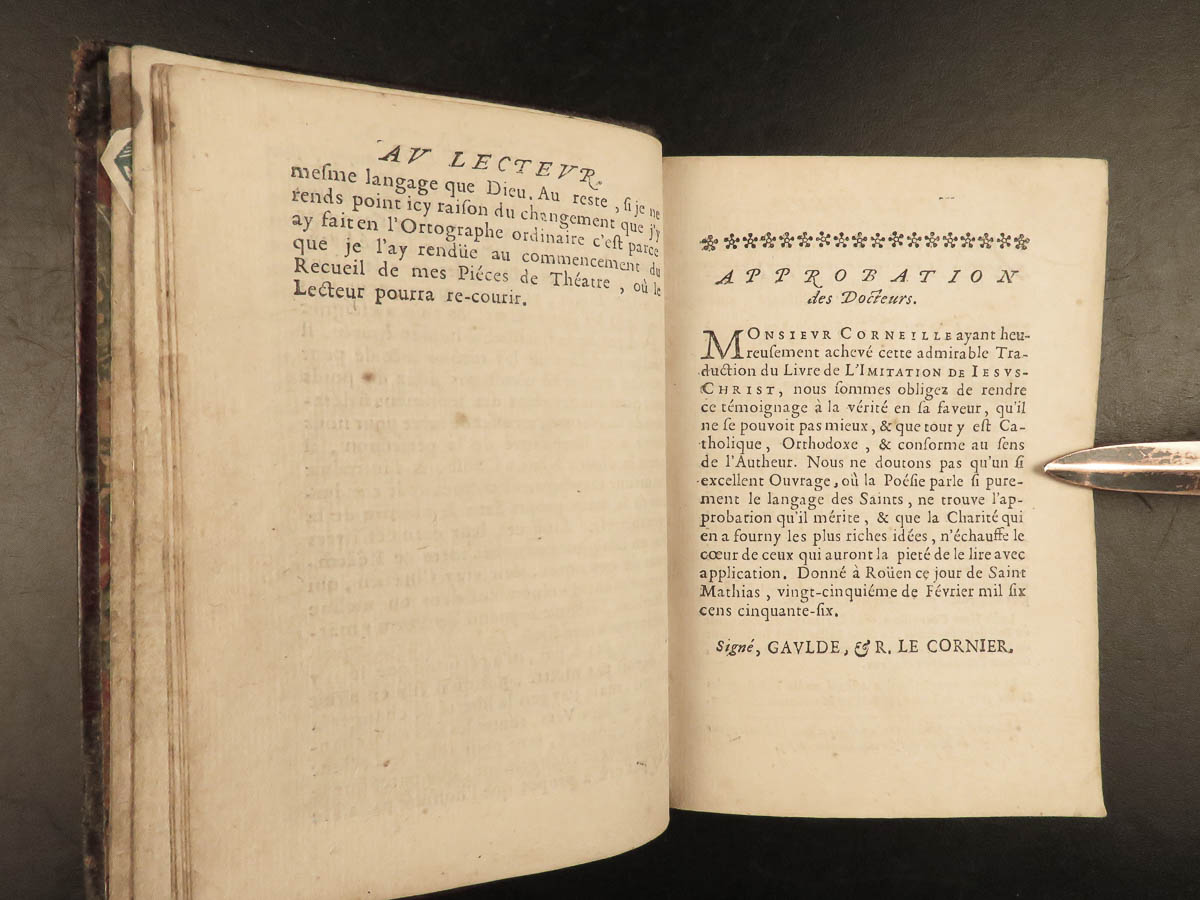 AV LECTEVR.
meſme langage que Dieu. Au reste, ſi je ne
rends point icy raiſon du changement que j'y
ay fait en l'Ortographe ordinaire c'eſt parce
que je l'ay rendüe au commencement du
Recueil de mes Piéces de Théatre, où le
Lecteur pourra re-courir.
APPROBATION
des Docteurs.
MONSIEVR CORNEILLE ayant heu-
reuſement achevé cette admirable Tra-
duction du Livre de L'IMITATION DE IESVS-
CHRIST, nous ſommes obligez de rendre
ce témoignage à la vérité en ſa faveur, qu'il
ne ſe pouvoit pas mieux, & que tout y eſt Ca-
tholique, Orthodoxe, & conforme au ſens
de l'Autheur. Nous ne doutons pas qu'un ſi
excellent Ouvrage, où la Poéſie parle ſi pure-
ment le langage des Saints, ne trouve l'ap-
probation qu'il mérite, & que la Charité qui
en a fourny les plus riches idées, n'échauffe le
cœur de ceux qui auront la pieté de le lire avec
application. Donné à Roüen ce jour de Saint
Mathias, vingt-cinquiéme de Février mil ſix
cens cinquante-ſix.
Signé, GAVLDE, & R. LE CORNIER.